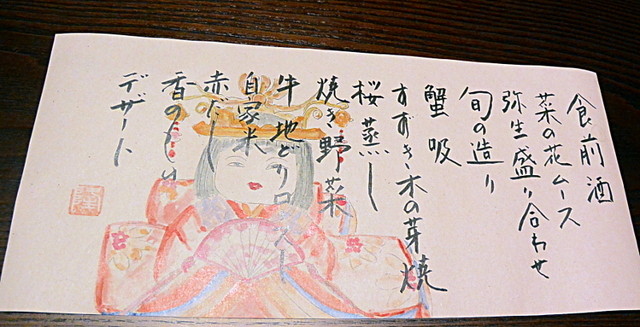 食前酒
菜の花ムース
弥生盛り合わせ
旬の造り
蟹吸
すずき木の芽焼
桜蒸し
焼き野菜
牛地どりロースー
自家米
赤だし
香のもの
デザート